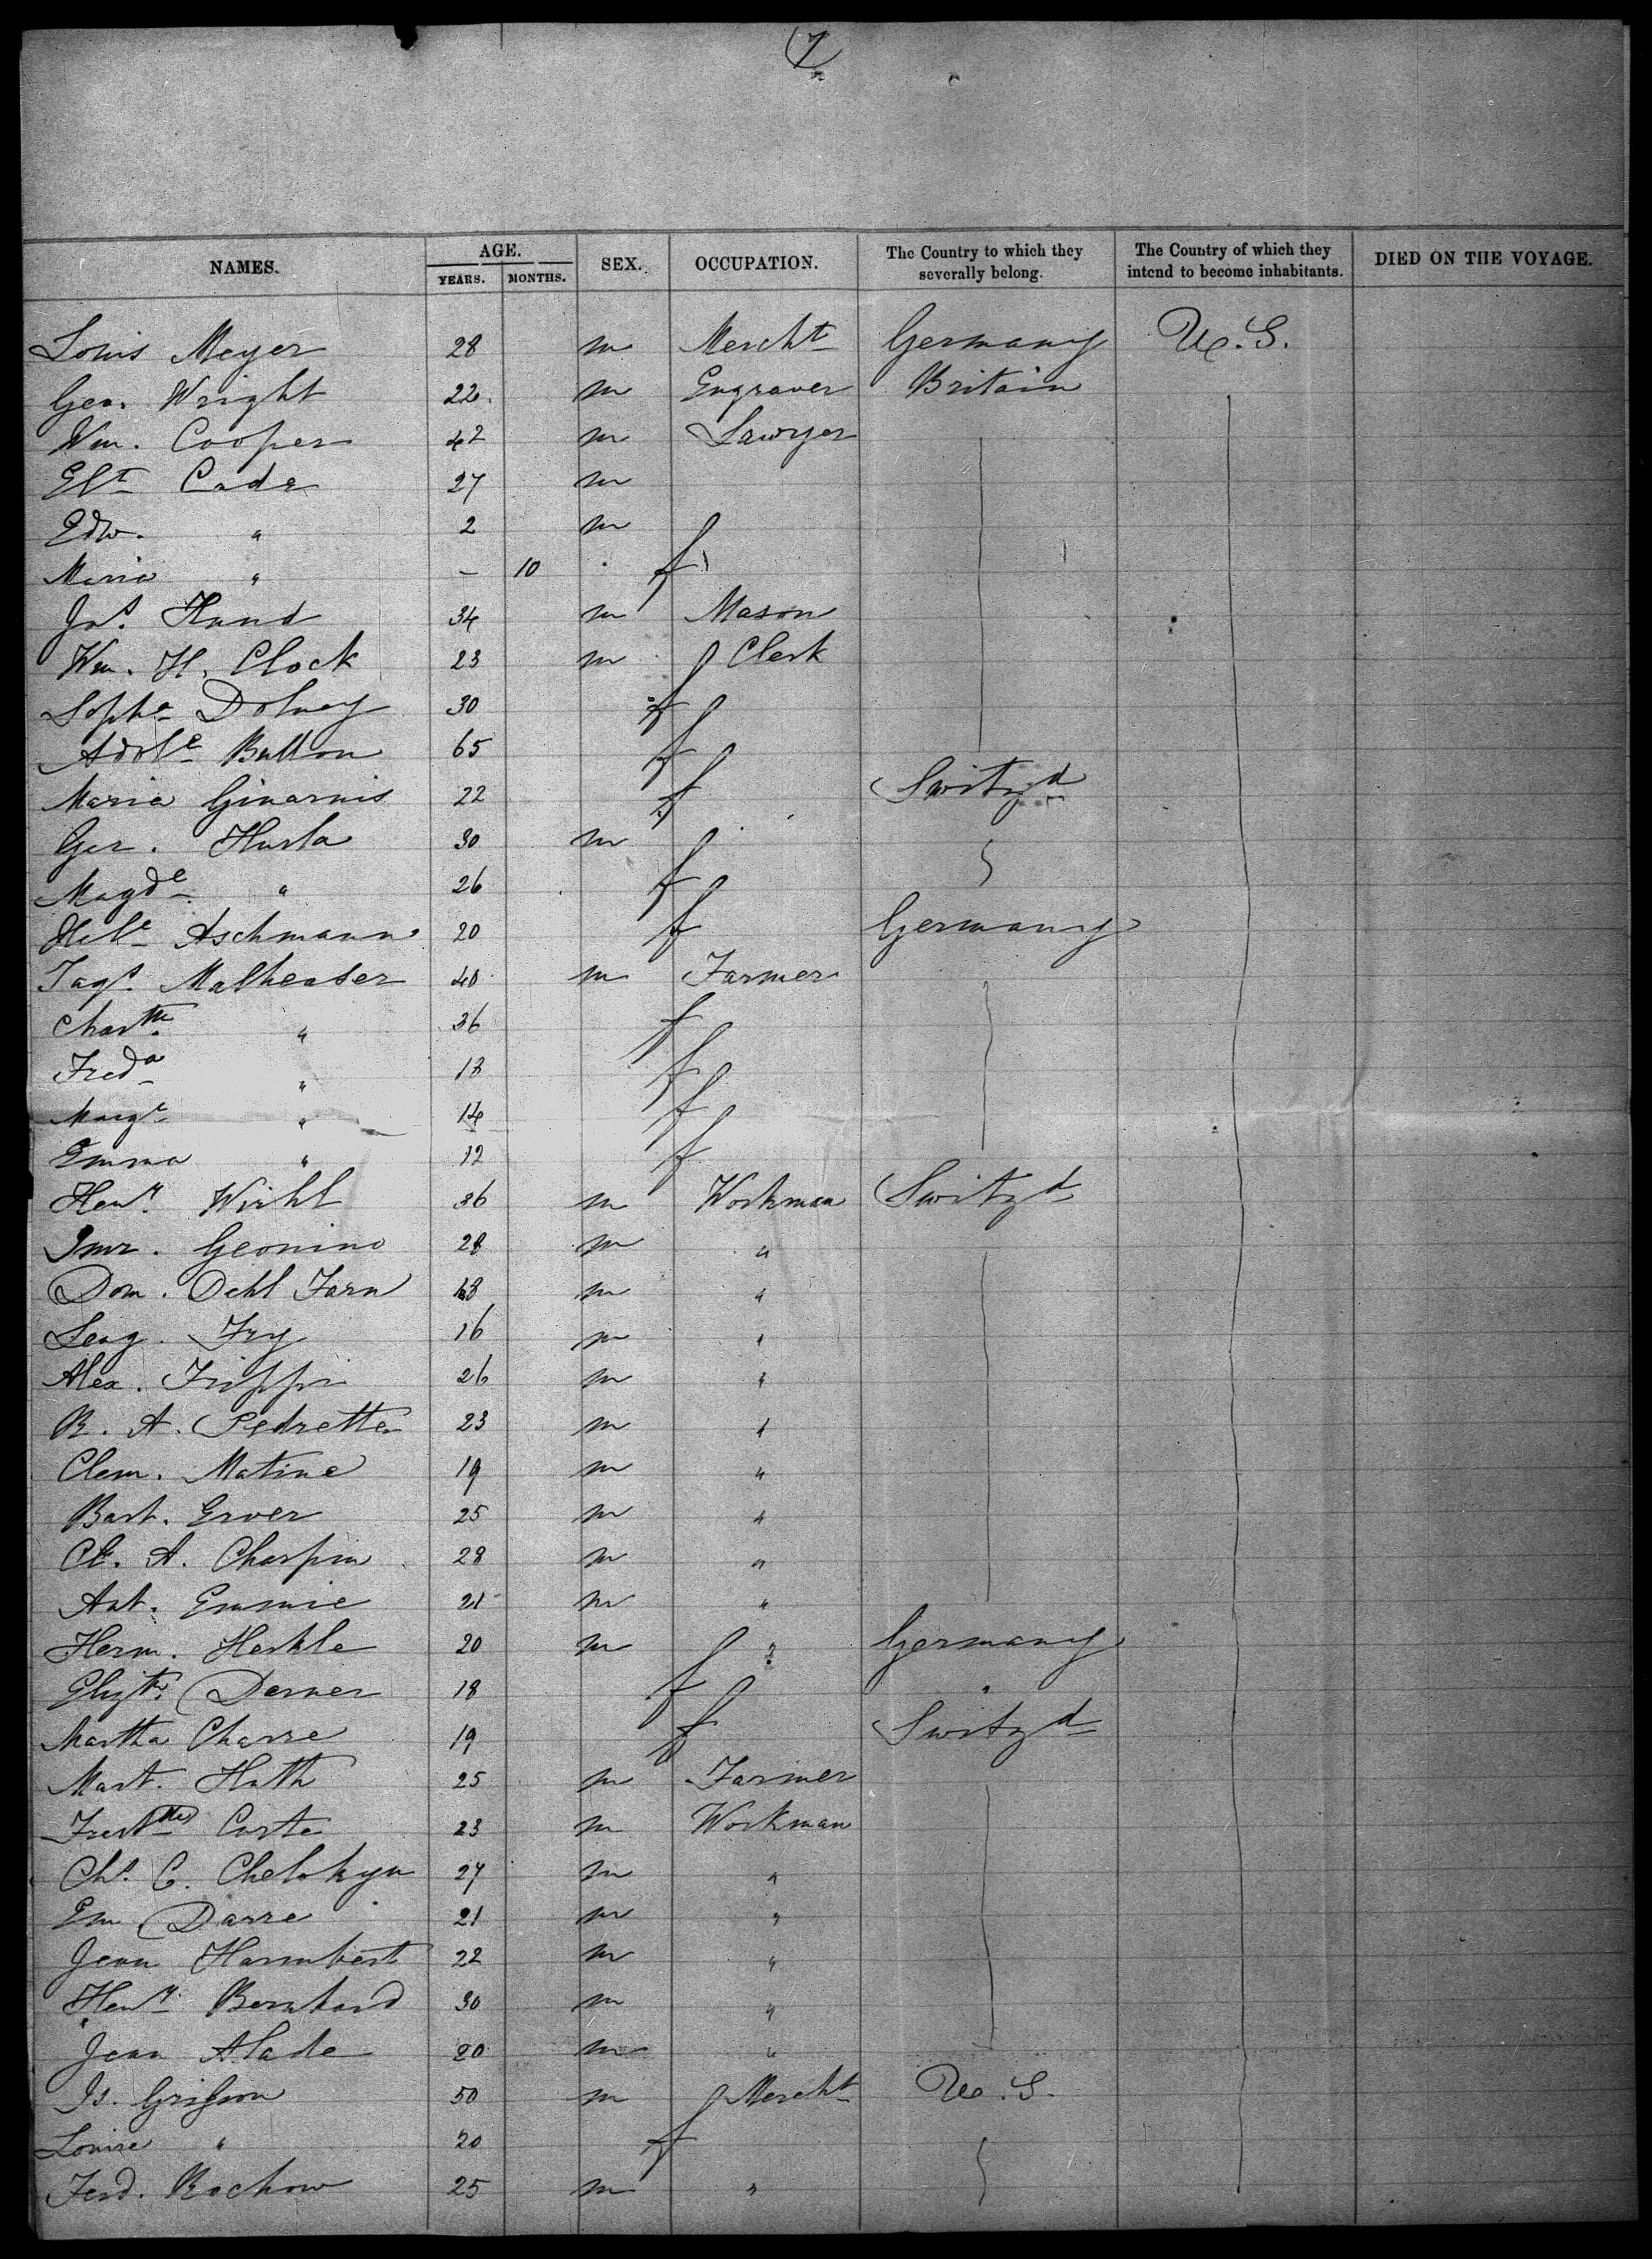 7
NAMES. AGE. SEX. OCCUPATION. The Country to which they severally belong. The Country of which they intend to become inhabitants. DIED ON THE VOYAGE.
YEARS. MONTHS.
Louis Meyer 28 m Mercht Germany U.S.
Geo. Wright 22 m Engraver Britain
Wm. Cooper 42 m Lawyer
Elt Cade 27 m
Edw. " 2 m
Maria " – 10 f
Jas. Hand 34 m Mason
Wm. H. Clock 23 m Clerk
Sopha Dolney 30 f
Adole Button 65 f
Maria Ginarnis 22 f Switzd
Ger. Hurla 30 m
Magde " 26 f
Hele Aschmann 20 f Germany
Jags. Malheaser 40 m Farmer
Chartte " 36 f
Freda " 13 f
Marge " 14 f
Emma " 12 f
Heny. Wirhl 36 m Workman Switzd
Geonino 28 m "
Dom. Oehl Farn m "
Fry 16 m "
Alex. Frippi 26 m "
R. A. Pedrette 23 m "
Clem. Matine 19 m "
Bart. Erver 25 m "
A. Charpin 28 m "
Ant. Emmie 21 m "
Herm. Herkle 20 m " Germany
Elizth. Derner 18 f "
Martha Charre 19 f Switzd
Mart. Hoth 25 m Farmer
Carte 23 m Workman
Chs. C. Chelokyn 27 m "
Em Darre 21 m "
Jean Harmbert 22 m "
Heny. Bernhard 30 m "
Jean Alade 20 m "
Is. Grifson 50 m Mercht U.S.
Louise " 20 f
Ferd. Rochow 25 m "